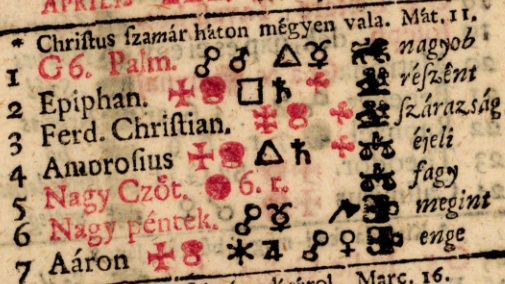 APRILIS
* Chriſtus ſzamár háton mégyen vala. Mát. 11.
1 G 6. Palm. ☍ ♂ △ ☿ nagyob
2 Epiphan. □ ♄ részént
3 Ferd. Chriſtian. ſzárazság
4 Ambroſius △ ♄ éjeli
5 Nagy Czöt. 6. r. fagy
6 Nagy péntek. ☍ ☿ megint
7 Aáron ✱ ♃ ☍ ♀ enge
Marc. 16.